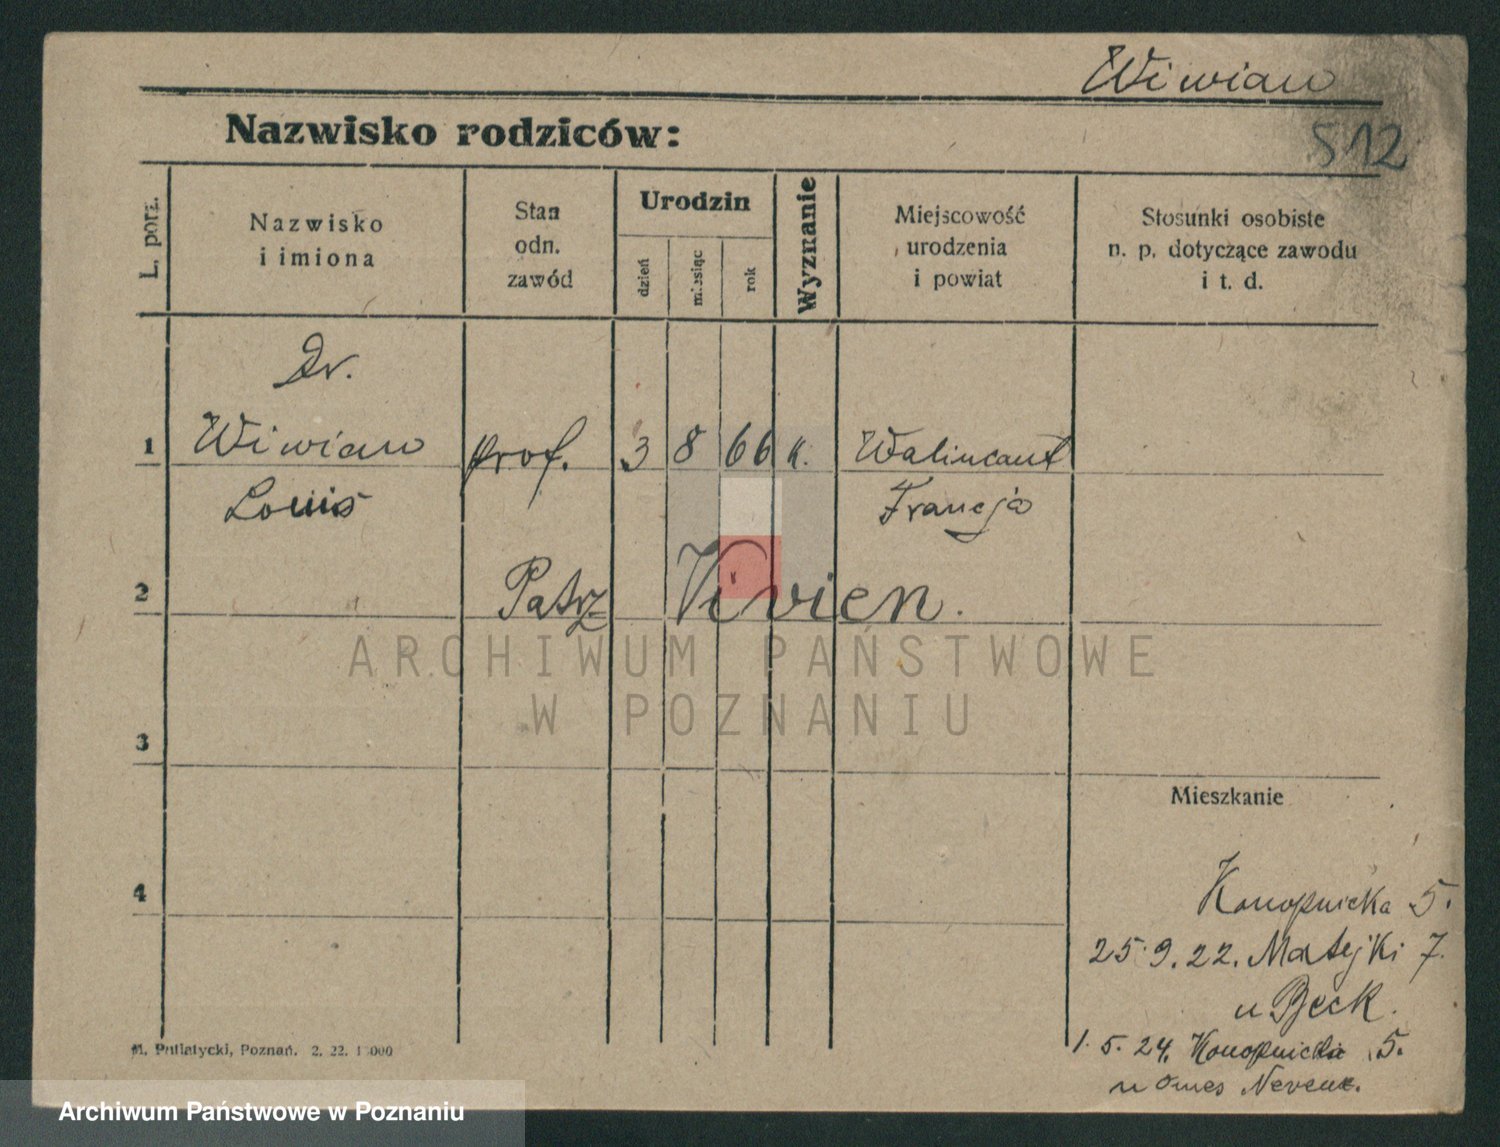 Wiwian
Nazwisko rodziców:
512
L. porz.
Nazwisko
i imiona
Stan
odn.
zawód
Urodzin
dzień
miesiąc
rok
Wyznanie
Miejscowość
urodzenia
i powiat
Stosunki osobiste
n. p. dotyczące zawodu
i t. d.
Dr.
1 Wiwian prof. 3 8 66 k. Walincant
Louis Francja
2 Patrz Vivien.
ARCHIWUM PAŃSTWOWE
W POZNANIU
3
Mieszkanie
4
Konopnicka 5.
25.9.22. Matejki 7.
u Beck.
1.5.24. Konopnicka 5.
u
M. Putiatycki, Poznań. 2. 22. 1 000
Archiwum Państwowe w Poznaniu